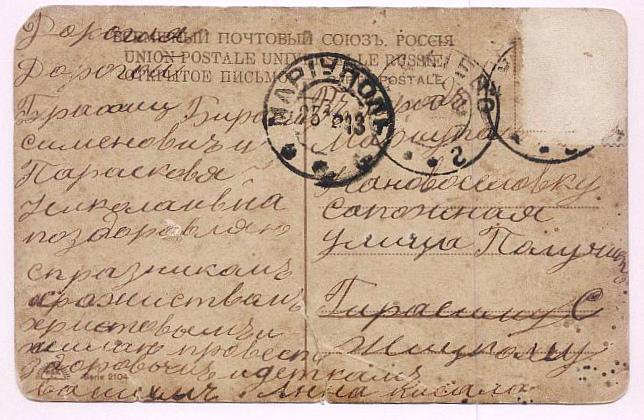 Дорогия
ВСЕМІРНЫЙ ПОЧТОВЫЙ СОЮЗЪ. РОССІЯ
UNION POSTALE UNIVERSELLE RUSSIE
ОТКРЫТОЕ ПИСЬМО POSTALE
МАРІУПОЛЬ
13
2
Дорогия
Гирасим
сименовичъ и
Парасковя
Николаивна
поздоровляю
спразникамъ
сражиствамъ
христовымъ и
жилаю провести
здоровю и деткамъ
вашимъ Анна
городъ
Мариупол
Новоселовку
сапожная
улица Получит
Гирасиму С
Serie 2104